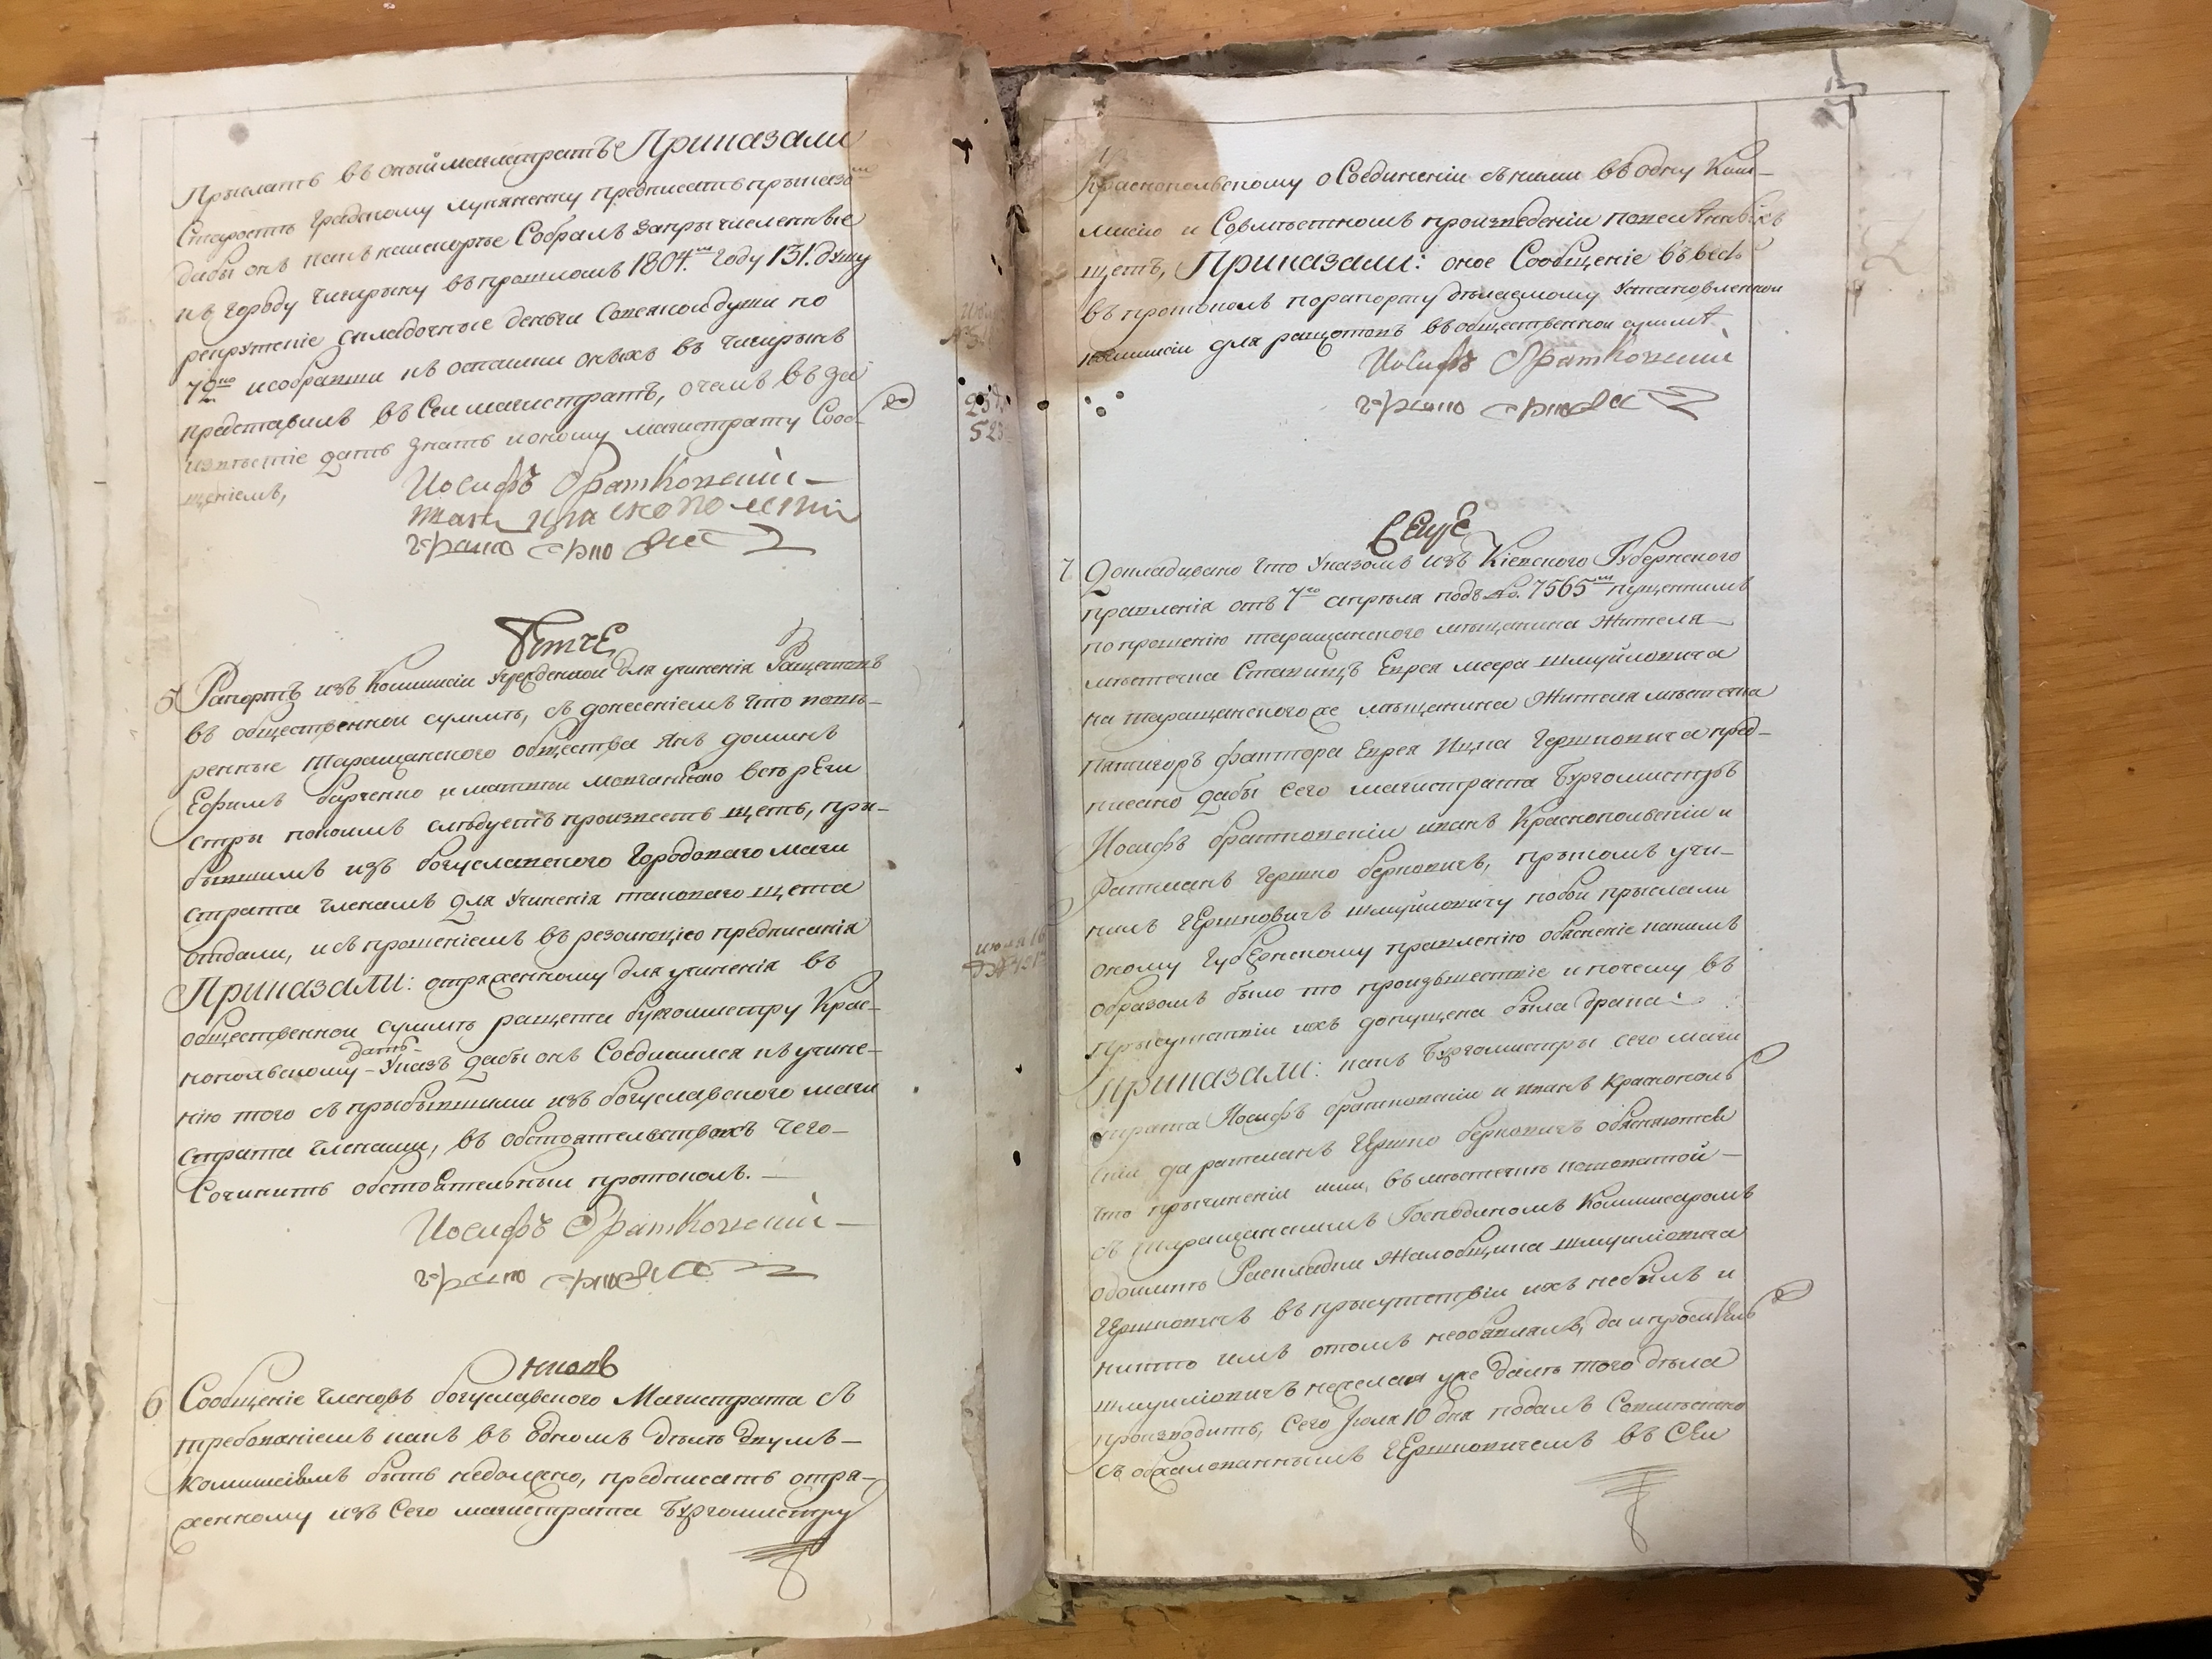 Прыслать въ оный магистратъ Приказали
Старостѣ градскому лукяненку предписать прыказа
дабы онъ какъ наискорѣе Собралъ запрычисленные
къ городу Чигрыну въ прошломъ 1804.мъ году 131. душу
рекрутскіе складочные деньги Сокеждой души по
72 исобравши къ остачи оныхъ въ чигрынѣ
представилъ въ Сей магистратъ, очемъ въ
извѣстіе дать знать ионому магистрату Сооб-
щеніемъ,
Иосифъ Братковскій
Иванъ Краснопольскій
Гершко Берковичъ
5 Рапортъ изъ Коммисіи Учрежденной для учиненія Ращетовъ
въ общественной суммѣ, съ донесеніемъ что повѣ-
ренные таращанского общества Янъ
Ефимъ и матвѣй всѣ рЕги
стры покоимъ слѣдуетъ произвесть щетъ, при-
бывшимъ изъ богуславского Городоваго маги
страта членамъ для Учиненія таковаго щета
отдали, исъ прошеніемъ въ резолюцію предписанія
Приказали: отряженному для учиненія въ
общественной суммѣ ращета бургомистру Крас-
нопольскому дать Указъ дабы онъ Соединился къ учине-
нію того съ прыбывшими изъ богуславского маги
страта членами, въ обстоятельствахъ чего
Сочинить обстоятельный протоколъ.
Иосифъ Братковскій
Гершко Берковичъ
6 Сообщеніе членовъ богуславского Магистрата съ
требованіемъ какъ въ Едномъ дѣлѣ двумъ
Коммисіямъ быть недолжно, предписать отря-
женному изъ Сего магистрата Бургомистру
Краснопольскому о Соединеніи съ ними въ одну Ком-
мисію и Совмѣстномъ произведеніи
щетъ, Приказали: оное Сообщеніе
въ протоколъ порапорту Установленной
коммисіи для ращотовъ въобщественной суммѣ.
Иосифъ Братковскій
Гершко Берковичъ
ЕщЕ
7 Докладывано что Указомъ изъ Кіевского Губернского
правленія отъ 7го апрѣля подъ №. 7565мъ пущеннымъ
попрошенію таращанского мѣщанина Жителя
мѣстечка Ставищъ Еврея меера шмуйловича
на таращанского же мѣщанина Жителя мѣстечка
Пятигоръ фактора Еврея Ицка Гершковича пред-
писано дабы Сего магистрата Бургомистръ
Иосифъ братковскіи иванъ Краснопольскіи и
Ратманъ Гершко берковичъ, прыкомъ учи-
нилъ гЕршковичъ шмуйловичу побои прыслали
оному губЕрнскому правленію обясненіе какимъ
образомъ было то произвшествіе и почему въ
прысутствіи ихъ допущена была драка:
Приказали: какъ Бургомистры сего маги
страта Иосифъ братковскіи и иванъ Краснополь
скіи да ратманъ Гершко берковичъ обясняются
что прычиненіи ими, въ мѣстечкѣ
съ таращанскимъ Господиномъ Коммисаромъ
Раскладки Жалобщика шмуиловича
гЕршковичъ въ прысутствіи ихъ небилъ и
никто имъ отомъ необявлялъ, да и
шмуиловичъ нежелая уже далѣ того дѣла
производить, Сего Іюля 10 дня подалъ Совмѣстно
съ обжалованнымъ гЕршковичемъ въ СЕи